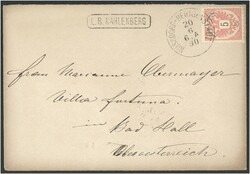 L.B. KAHLENBERG
20
6
90
5
Frau Marianne Obermayer
Villa Fortuna
in
Bad Hall
Oberösterreich